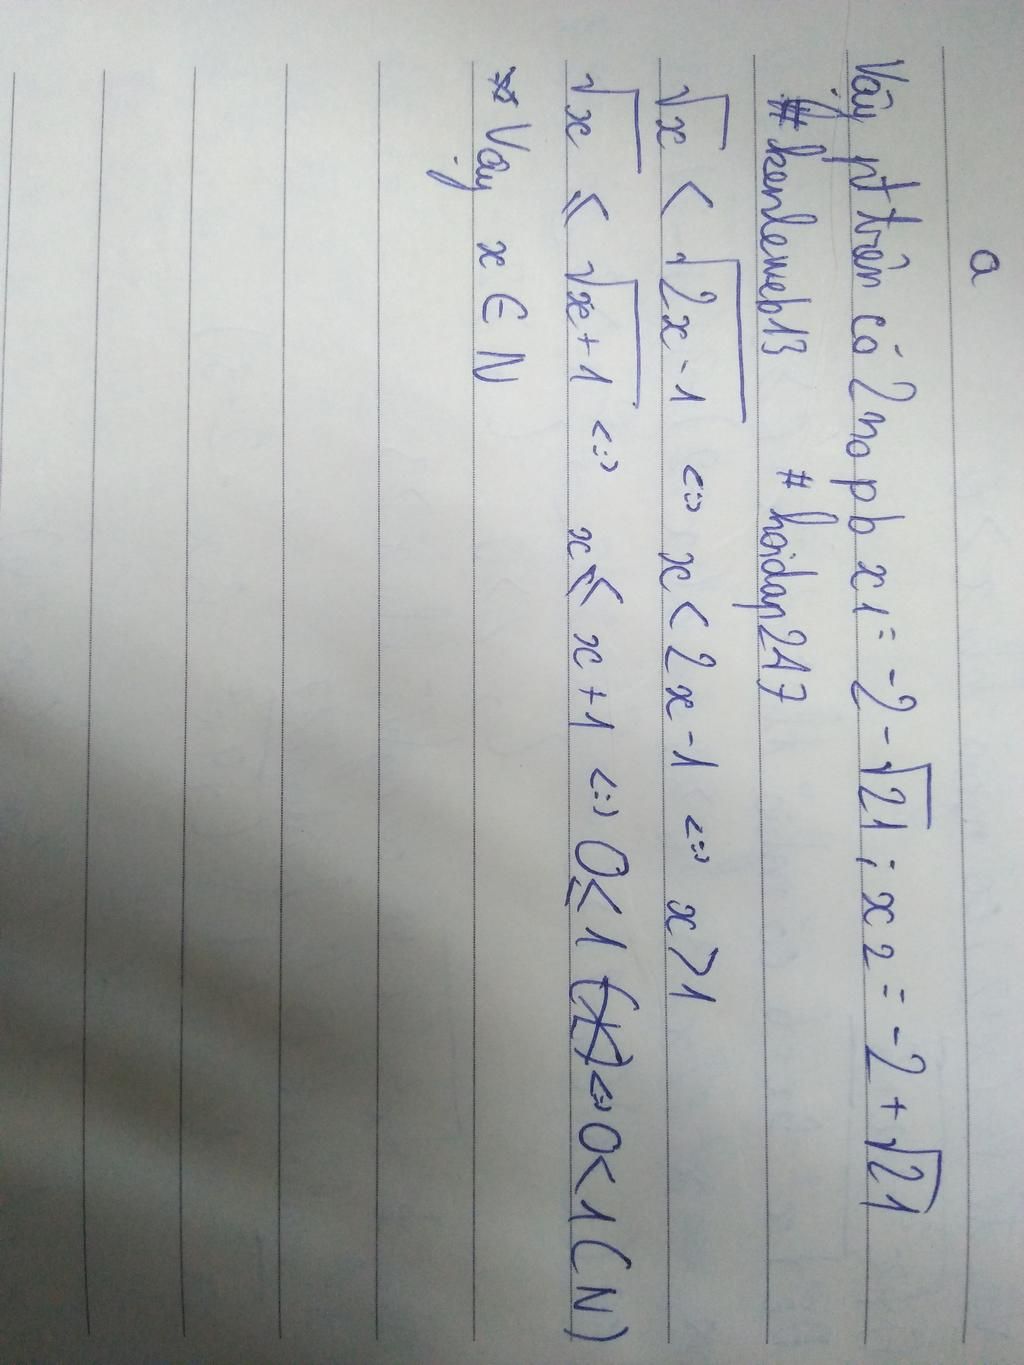 a
Vậy pt trên có 2 no pb x1 = -2 - √21 ; x2 = -2 + √21
#kenleweb13 #hoidap247
√x < √2x-1 <=> x < 2x - 1 <=> x > 1
√x ≤ √x+1 <=> x ≤ x + 1 <=> 0 ≤ 1 <=> 0 < 1 (N)
Vậy x ∈ N